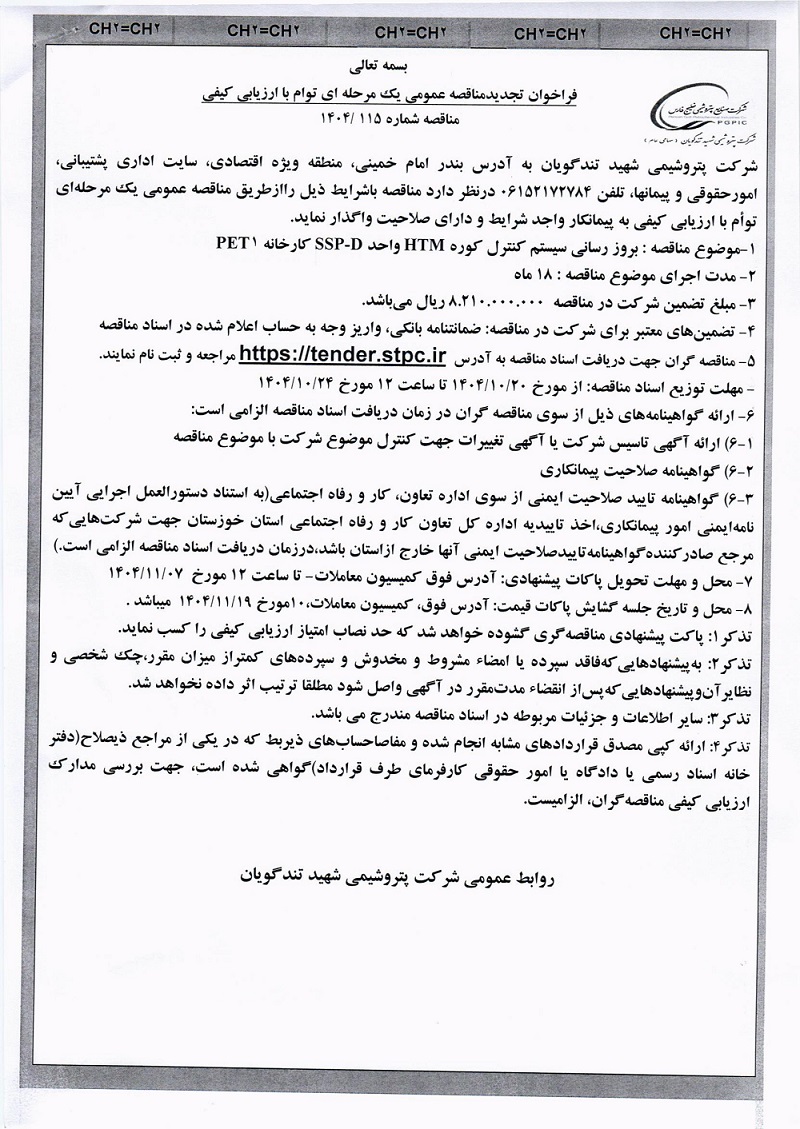 CH۲=CH۲ CH۲=CH۲ CH۲=CH۲ CH۲=CH۲ CH۲=CH۲
بسمه تعالی
فراخوان تجدیدمناقصه عمومی یک مرحله ای توام با ارزیابی کیفی
مناقصه شماره ۱۱۵ /۱۴۰۴
شرکت صنایع پتروشیمی خلیج فارس
PGPIC
شرکت پتروشیمی شهید تندگویان (سهامی عام)
شرکت پتروشیمی شهید تندگویان به آدرس بندر امام خمینی، منطقه ویژه اقتصادی، سایت اداری پشتیبانی،
امورحقوقی و پیمانها، تلفن ۰۶۱۵۲۱۷۲۷۸۴ درنظر دارد مناقصه باشرایط ذیل راازطریق مناقصه عمومی یک مرحله‌ای
توأم با ارزیابی کیفی به پیمانکار واجد شرایط و دارای صلاحیت واگذار نماید.
۱-موضوع مناقصه : بروز رسانی سیستم کنترل کوره HTM واحد SSP-D کارخانه PET۱
۲- مدت اجرای موضوع مناقصه : ۱۸ ماه
۳- مبلغ تضمین شرکت در مناقصه ۸.۲۱۰.۰۰۰.۰۰۰ ریال می‌باشد.
۴- تضمین‌های معتبر برای شرکت در مناقصه: ضمانتنامه بانکی، واریز وجه به حساب اعلام شده در اسناد مناقصه
۵- مناقصه گران جهت دریافت اسناد مناقصه به آدرس https://tender.stpc.ir مراجعه و ثبت نام نمایند.
- مهلت توزیع اسناد مناقصه: از مورخ ۱۴۰۴/۱۰/۲۰ تا ساعت ۱۲ مورخ ۱۴۰۴/۱۰/۲۴
۶- ارائه گواهینامه‌های ذیل از سوی مناقصه گران در زمان دریافت اسناد مناقصه الزامی است:
۶-۱) ارائه آگهی تاسیس شرکت یا آگهی تغییرات جهت کنترل موضوع شرکت با موضوع مناقصه
۶-۲) گواهینامه صلاحیت پیمانکاری
۶-۳) گواهینامه تایید صلاحیت ایمنی از سوی اداره تعاون، کار و رفاه اجتماعی(به استناد دستورالعمل اجرایی آیین
نامه‌ایمنی امور پیمانکاری،اخذ تاییدیه اداره کل تعاون کار و رفاه اجتماعی استان خوزستان جهت شرکت‌هایی‌که
مرجع صادرکننده‌گواهینامه‌تاییدصلاحیت ایمنی آنها خارج ازاستان باشد،درزمان دریافت اسناد مناقصه الزامی است.)
۷- محل و مهلت تحویل پاکات پیشنهادی: آدرس فوق کمیسیون معاملات- تا ساعت ۱۲ مورخ ۱۴۰۴/۱۱/۰۷
۸- محل و تاریخ جلسه گشایش پاکات قیمت: آدرس فوق، کمیسیون معاملات،۱۰مورخ ۱۴۰۴/۱۱/۱۹ میباشد .
تذکر۱: پاکت پیشنهادی مناقصه‌گری گشوده خواهد شد که حد نصاب امتیاز ارزیابی کیفی را کسب نماید.
تذکر۲: به‌پیشنهادهایی‌که‌فاقد سپرده یا امضاء مشروط و مخدوش و سپرده‌های کمتراز میزان مقرر،چک شخصی و
نظایرآن‌وپیشنهادهایی‌که‌پس‌از انقضاء مدت‌مقرر در آگهی واصل شود مطلقا ترتیب اثر داده نخواهد شد.
تذکر۳: سایر اطلاعات و جزئیات مربوطه در اسناد مناقصه مندرج می باشد.
تذکر۴: ارائه کپی مصدق قراردادهای مشابه انجام شده و مفاصاحساب‌های ذیربط که در یکی از مراجع ذیصلاح(دفتر
خانه اسناد رسمی یا دادگاه یا امور حقوقی کارفرمای طرف قرارداد)گواهی شده است، جهت بررسی مدارک
ارزیابی کیفی مناقصه‌گران، الزامیست.
روابط عمومی شرکت پتروشیمی شهید تندگویان